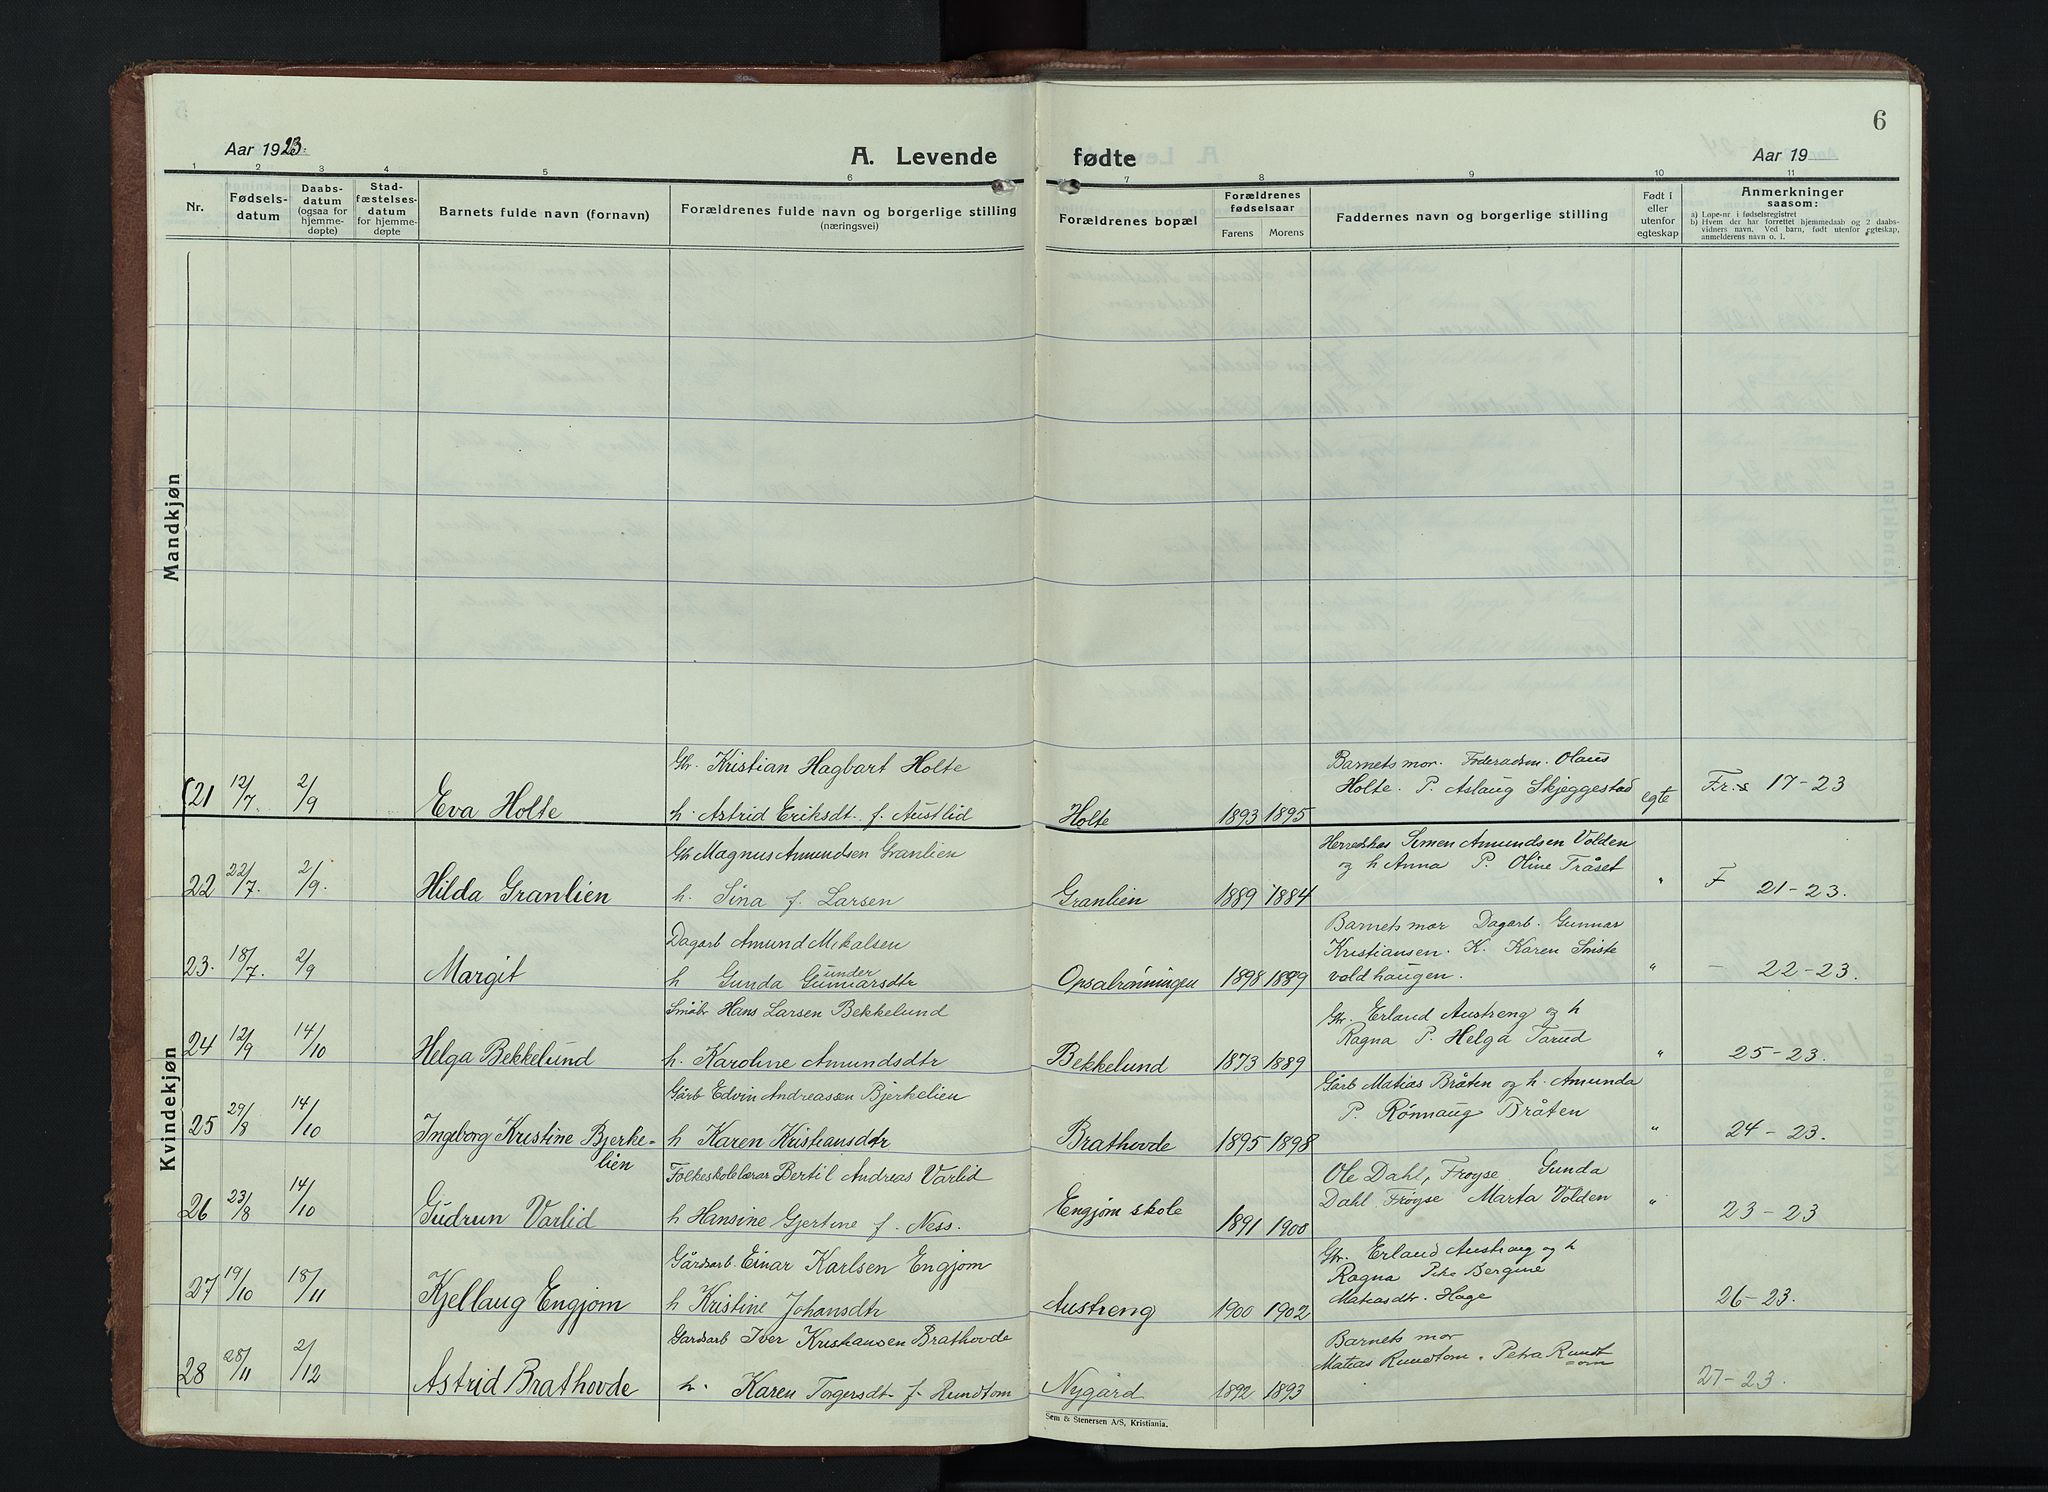 6
Aar 1923.
A. Levende fødte
Aar 19
1 2 3 4 5 6 7 8 9 10 11
Nr.
Fødselsdatum
Daabsdatum (ogsaa for hjemmedøpte)
Stadfæstelsesdatum for hjemmedøpte
Barnets fulde navn (fornavn)
Forældrenes fulde navn og borgerlige stilling
(næringsvei)
Forældrenes bopæl
Forældrenes fødselsaar
Farens Morens
Faddernes navn og borgerlige stilling
Født i eller utenfor egteskap
Anmerkninger
saasom:
a) Løpe-nr. i fødselsregistret
b) Hvem der har forrettet hjemmedaab og 2 daabs-
vidners navn. Ved barn, født utenfor egteskap,
anmelderens navn o. l.
Mandkjøn
Gbr. Kristian Hagbart Holte
Barnets mor. Foderaadsm. Olaus
21 12/7. 2/9 Eva Holte h. Astrid Eriksdt. f. Austlid Holte 1893 1895 Holte. P. Aslaug Skjeggestad egte Fr.s 17-23
Kvindekjøn
Gbr Magnus Amundsen Granlien
Simen Amundsen Volden
22 22/7. 2/9. Hilda Granlien h. Sina f. Larsen Granlien 1889 1884 og h Anna P. Oline Tråset " F 21-23.
Dagarb Amund Mikalsen
Barnets mor Dagarb. Gunnar
Kristiansen. K. Karen Smiste
23. 18/7. 2/9 Margit h Gunda Gunnarsdtr Opsalrønningen 1898 1889 voldhaugen. " – 22-23.
Småbr Hans Larsen Bekkelund
Gbr. Erland Austreng og h
24 12/9 14/10 Helga Bekkelund h. Karoline Amundsdtr Bekkelund 1873 1889 Ragna P. Helga Tarud " 25-23.
Gårb Edvin Andreassen Bjerkelien
Gårb Matias Bråten og h. Amunda
25 29/8 14/10 Ingeborg Kristine Bjerke- h Karen Kristiansdtr Brathovde 1895 1898 P. Rønnaug Bråten " 24-23.
lien
Folkeskolelærar Bertil Andreas Varlid
Ole Dahl, Frøyse Gunda
26 23/8 14/10 Gudrun Varlid h Hansine Gjertine f. Ness. Engjom skole 1891 1900 Dahl Frøyse Marta Volden " 23-23
Gårdsarb. Einar Karlsen Engjom
Gbr. Erland Austreng og h
Ragna Bergine
27 19/10 18/11 Kjellaug Engjom h Kristine Johansdtr Austreng 1900 1902 Matiasdtr. Hage 26-23.
Gardsarb Iver Kristiansen Brathovde
Barnets mor
28 28/11 2/12 Astrid Brathovde h. Karen Torgersdt. f. Rundtom Nygård 1892 1893 Matias Rundtom. Petra Rundtom 27-23.
Sem & Stenersen A/S, Kristiania.